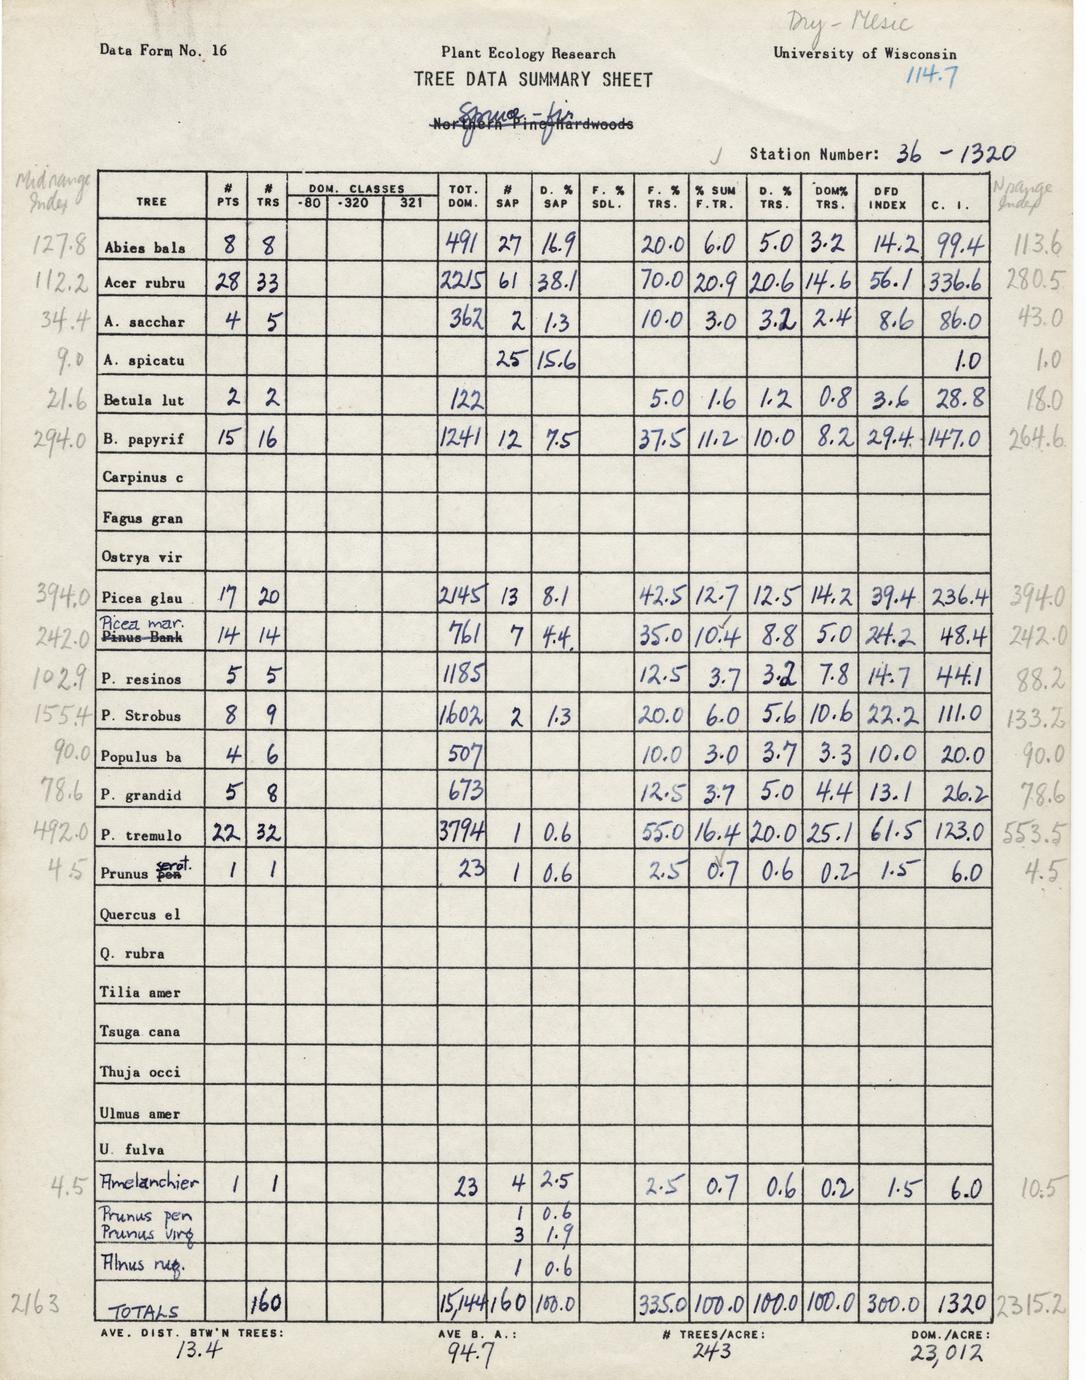 Dry-Mesic
Data Form No. 16 Plant Ecology Research University of Wisconsin
TREE DATA SUMMARY SHEET 114.7
Spruce-fir
Northern Pine Hardwoods
Station Number: 36 - 1320
Midrange Index TREE # PTS # TRS DOM. CLASSES -80 -320 321 TOT. DOM. # SAP D. % SAP F. % SDL. F. % TRS. % SUM F.TR. D. % TRS. DOM% TRS. DFD INDEX C. I. Nrange Index
127.8 Abies bals 8 8 491 27 16.9 20.0 6.0 5.0 3.2 14.2 99.4 113.6
112.2 Acer rubru 28 33 2215 61 38.1 70.0 20.9 20.6 14.6 56.1 336.6 280.5
34.4 A. sacchar 4 5 362 2 1.3 10.0 3.0 3.2 2.4 8.6 86.0 43.0
9.0 A. spicatu 25 15.6 1.0 1.0
21.6 Betula lut 2 2 122 5.0 1.6 1.2 0.8 3.6 28.8 18.0
294.0 B. papyrif 15 16 1241 12 7.5 37.5 11.2 10.0 8.2 29.4 147.0 264.6
Carpinus c
Fagus gran
Ostrya vir
394.0 Picea glau 17 20 2145 13 8.1 42.5 12.7 12.5 14.2 39.4 236.4 394.0
Picea mar.
242.0 Pinus Bank 14 14 761 7 4.4 35.0 10.4 8.8 5.0 24.2 48.4 242.0
102.9 P. resinos 5 5 1185 12.5 3.7 3.2 7.8 14.7 44.1 88.2
155.4 P. Strobus 8 9 1602 2 1.3 20.0 6.0 5.6 10.6 22.2 111.0 133.2
90.0 Populus ba 4 6 507 10.0 3.0 3.7 3.3 10.0 20.0 90.0
78.6 P. grandid 5 8 673 12.5 3.7 5.0 4.4 13.1 26.2 78.6
492.0 P. tremulo 22 32 3794 1 0.6 55.0 16.4 20.0 25.1 61.5 123.0 553.5
serot.
4.5 Prunus pen 1 1 23 1 0.6 2.5 0.7 0.6 0.2 1.5 6.0 4.5
Quercus el
Q. rubra
Tilia amer
Tsuga cana
Thuja occi
Ulmus amer
U. fulva
4.5 Amelanchier 1 1 23 4 2.5 2.5 0.7 0.6 0.2 1.5 6.0 10.5
Prunus pen 1 0.6
Prunus virg 3 1.9
Alnus rug. 1 0.6
2163 TOTALS 160 15,144 160 100.0 335.0 100.0 100.0 100.0 300.0 1320 2315.2
AVE. DIST. BTW'N TREES: AVE B. A.: # TREES/ACRE: DOM./ACRE:
13.4 94.7 243 23,012